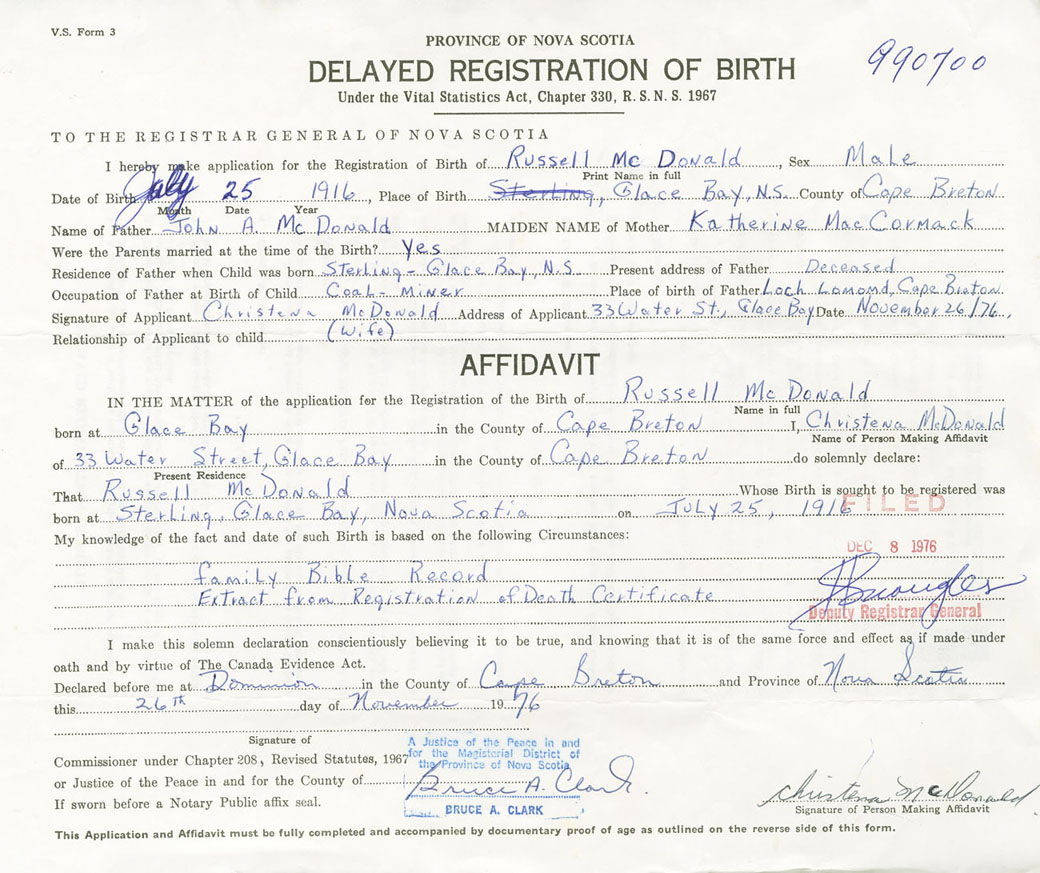 V.S. Form 3
PROVINCE OF NOVA SCOTIA
990700
DELAYED REGISTRATION OF BIRTH
Under the Vital Statistics Act, Chapter 330, R.S.N.S. 1967
TO THE REGISTRAR GENERAL OF NOVA SCOTIA
I hereby make application for the Registration of Birth of Russell McDonald, Sex Male
Print Name in full
Date of Birth July 25 1916, Place of Birth Sterling, Glace Bay, N.S. County of Cape Breton
Month Date Year
Name of Father John A. McDonald MAIDEN NAME of Mother Katherine MacCormack
Were the Parents married at the time of the Birth? Yes
Residence of Father when Child was born Sterling - Glace Bay, N.S. Present address of Father Deceased
Occupation of Father at Birth of Child Coal-Miner Place of birth of Father Loch Lomond, Cape Breton
Signature of Applicant Christena McDonald Address of Applicant 33 Water St., Glace Bay Date November 26/76,
Relationship of Applicant to child (Wife)
AFFIDAVIT
IN THE MATTER of the application for the Registration of the Birth of Russell McDonald
Name in full
born at Glace Bay in the County of Cape Breton I, Christena McDonald
Name of Person Making Affidavit
of 33 Water Street, Glace Bay in the County of Cape Breton do solemnly declare:
Present Residence
That Russell McDonald Whose Birth is sought to be registered was
born at Sterling, Glace Bay, Nova Scotia on July 25, 1916
FILED
My knowledge of the fact and date of such Birth is based on the following Circumstances:
DEC 8 1976
Family Bible Record
Extract from Registration of Death Certificate
Deputy Registrar General
I make this solemn declaration conscientiously believing it to be true, and knowing that it is of the same force and effect as if made under
oath and by virtue of The Canada Evidence Act.
Declared before me at Dominion in the County of Cape Breton and Province of Nova Scotia
this 26th day of November 1976
Signature of
Commissioner under Chapter 208, Revised Statutes, 1967
or Justice of the Peace in and for the County of
If sworn before a Notary Public affix seal.
A Justice of the Peace in and
for the Magisterial District of
the Province of Nova Scotia
Bruce A. Clark.
BRUCE A. CLARK
Christena McDonald
Signature of Person Making Affidavit
This Application and Affidavit must be fully completed and accompanied by documentary proof of age as outlined on the reverse side of this form.